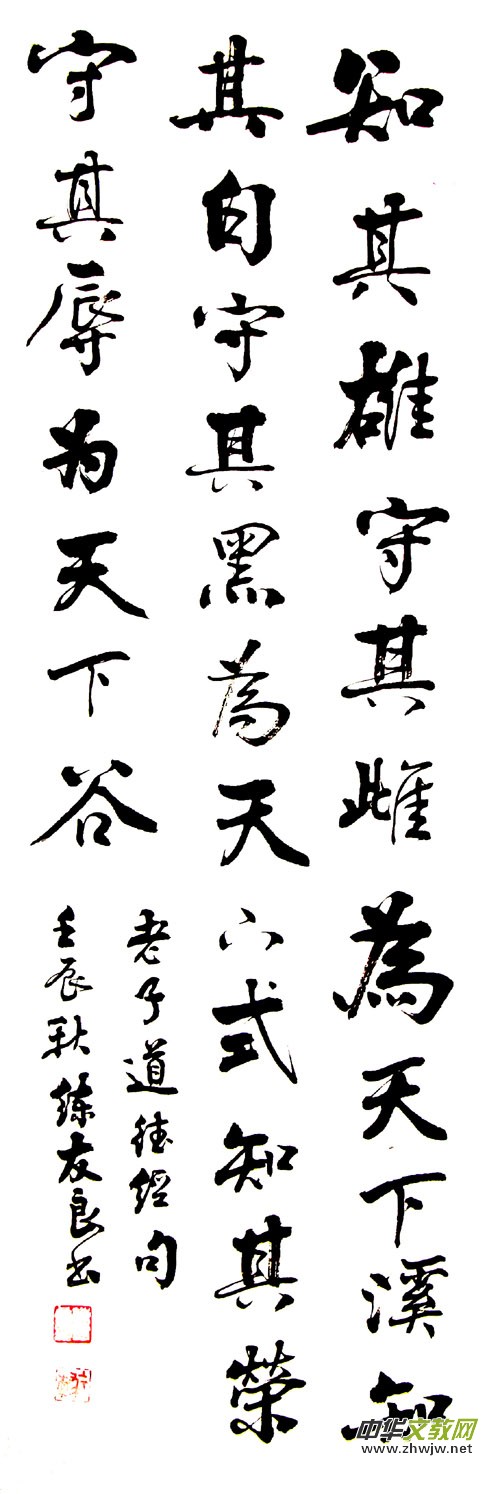 知其雄守其雌為天下溪知
其白守其黑為天下式知其荣
守其辱为天下谷
老子道德經句
壬辰秋练友良书
中华文教网
www.zhwjw.net